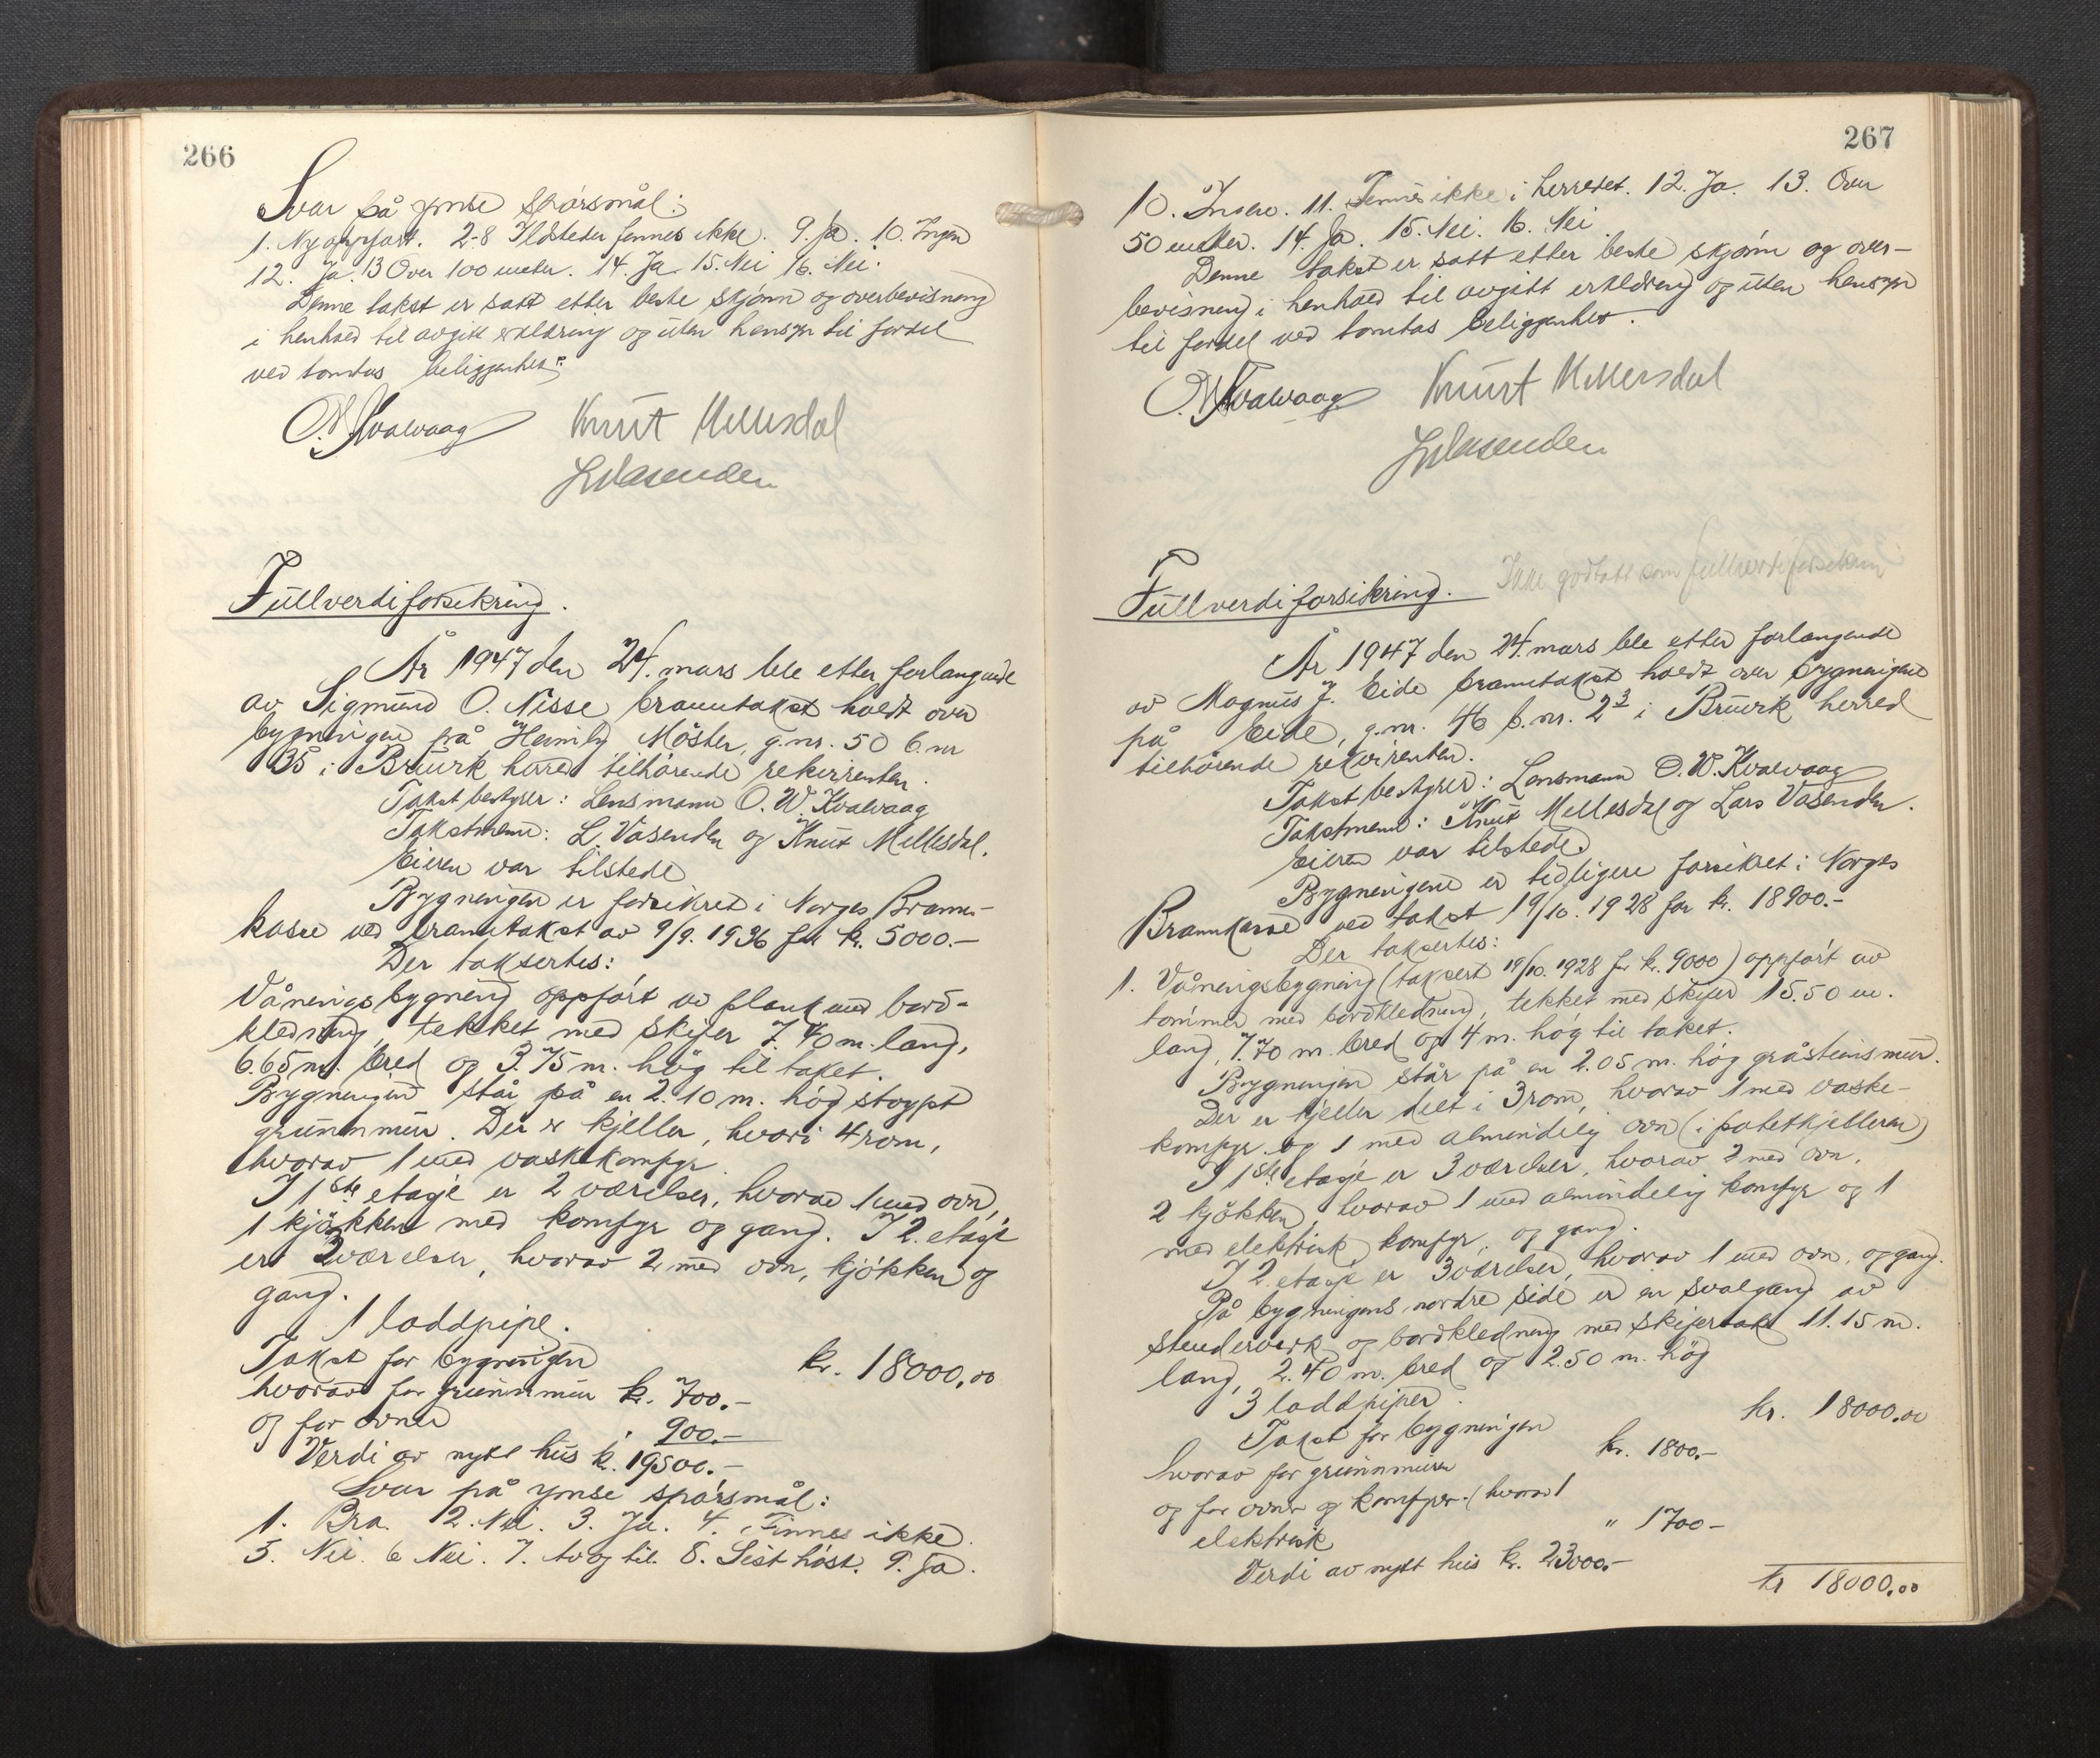 266
Svar på ymse spørsmål:
1. Ny oppført. 2-8 Ildsteder finnes ikke. 9. Ja. 10. Ingen
12. Ja 13 Over 100 meter. 14. Ja 15. Nei 16. Nei.
Denne takst er satt etter beste skjønn og overbevisning
i henhold til avgitt erklæring og uten hensyn til fordel
ved tomtas beliggenhet.
O.W. Kvalvaag Knut Mellesdal
L Vasenden
Fullverdiforsikring.
År 1947 den 24. mars ble etter forlangende
av Sigmund O. Nisse branntakst holdt over
bygningen på Møster, g.nr. 50 b.nr
35 i Bruvik herred tilhørende rekvirenten.
Takstbestyrer: Lensmann O. W. Kvalvaag
Takstmenn: L. Vasenden og Knut Mellesdal.
Eieren var tilstede
Bygningen er forsikret i Norges Brann-
kasse ved branntakst av 9/9. 1936 for kr. 5000.-
Der taksertes:
Våningsbygning oppført av plank med bord-
kledning, tekket med skifer 7.40 m. lang,
6.65 m. bred og 3.75 m. høg til taket.
Bygningen står på en 2.10 m. høg støypt
grunnmur. Der er kjeller, hvori 4 rom,
hvorav 1 med vaskekomfyr.
I 1ste etasje er 2 værelser, hvorav 1 med ovn,
1 kjøkken med komfyr og gang. I 2. etasje
er 2 værelser, hvorav 2 med ovn, kjøkken og
gang.
1 loddpipe.
Takst for bygningen kr. 18000,00
hvorav for grunnmur kr. 700.-
og for ovner " 900.-
Verdi av nytt hus kr. 19500.-
Svar på ymse spørsmål:
1. Bra. 2. Nei. 3. Ja. 4. Finnes ikke.
5. Nei. 6 Nei. 7. av og til. 8. Sist høst. 9. Ja.
267
10. Ingen. 11. Finnes ikke i herredet. 12. Ja. 13. Over
50 meter. 14. Ja. 15. Nei. 16. Nei.
Denne takst er satt etter beste skjønn og over-
bevisning i henhold til avgitt erklæring og uten hensyn
til fordel ved tomtas beliggenhet.
O.W. Kvalvaag Knut Mellesdal
L Vasenden
Fullverdiforsikring. Ikke godtatt som fullverdiforsikring
År 1947 den 24. mars ble etter forlangende
av Magnus J. Eide branntakst holdt over bygningene
på Eide, g.nr. 46 b.nr. 2³ i Bruvik herred
tilhørende rekvirenten.
Takstbestyrer: Lensmann O. W. Kvalvaag
Takstmenn: Knut Mellesdal og Lars Vasenden.
Eieren var tilstede.
Bygningene er tidligere forsikret i Norges
Brannkasse ved takst 19/10. 1928 for kr. 18900.-
Der taksertes:
1. Våningsbygning (taksert 19/10. 1928 for kr. 9000) oppført av
tømmer med bordkledning, tekket med skifer 15.50 m.
lang, 7.70 m. bred og 4 m. høg til taket.
Bygningen står på en 2.05 m. høg gråsteinsmur.
Der er kjeller delt i 3 rom, hvorav 1 med vaske-
komfyr og 1 med almindelig ovn (i potetkjelleren)
I 1ste etasje er 3 værelser, hvorav 2 med ovn,
2 kjøkken, hvorav 1 med almindelig komfyr og 1
med elektrisk komfyr, og gang.
I 2. etasje er 3 værelser, hvorav 1 med ovn, og gang.
På bygningens nordre side er en svalgang av
stenderverk og bordkledning med skifertak 11.15 m.
lang, 2.40 m. bred og 2.50 m. høg
3 loddpiper.
Takst for bygningen kr. 18000,00
hvorav for grunnmuren kr. 1800.-
og for ovner og komfyrer (hvorav 1
elektrisk " 1700-
Verdi av nytt hus kr. 23000.-
kr 18000,00